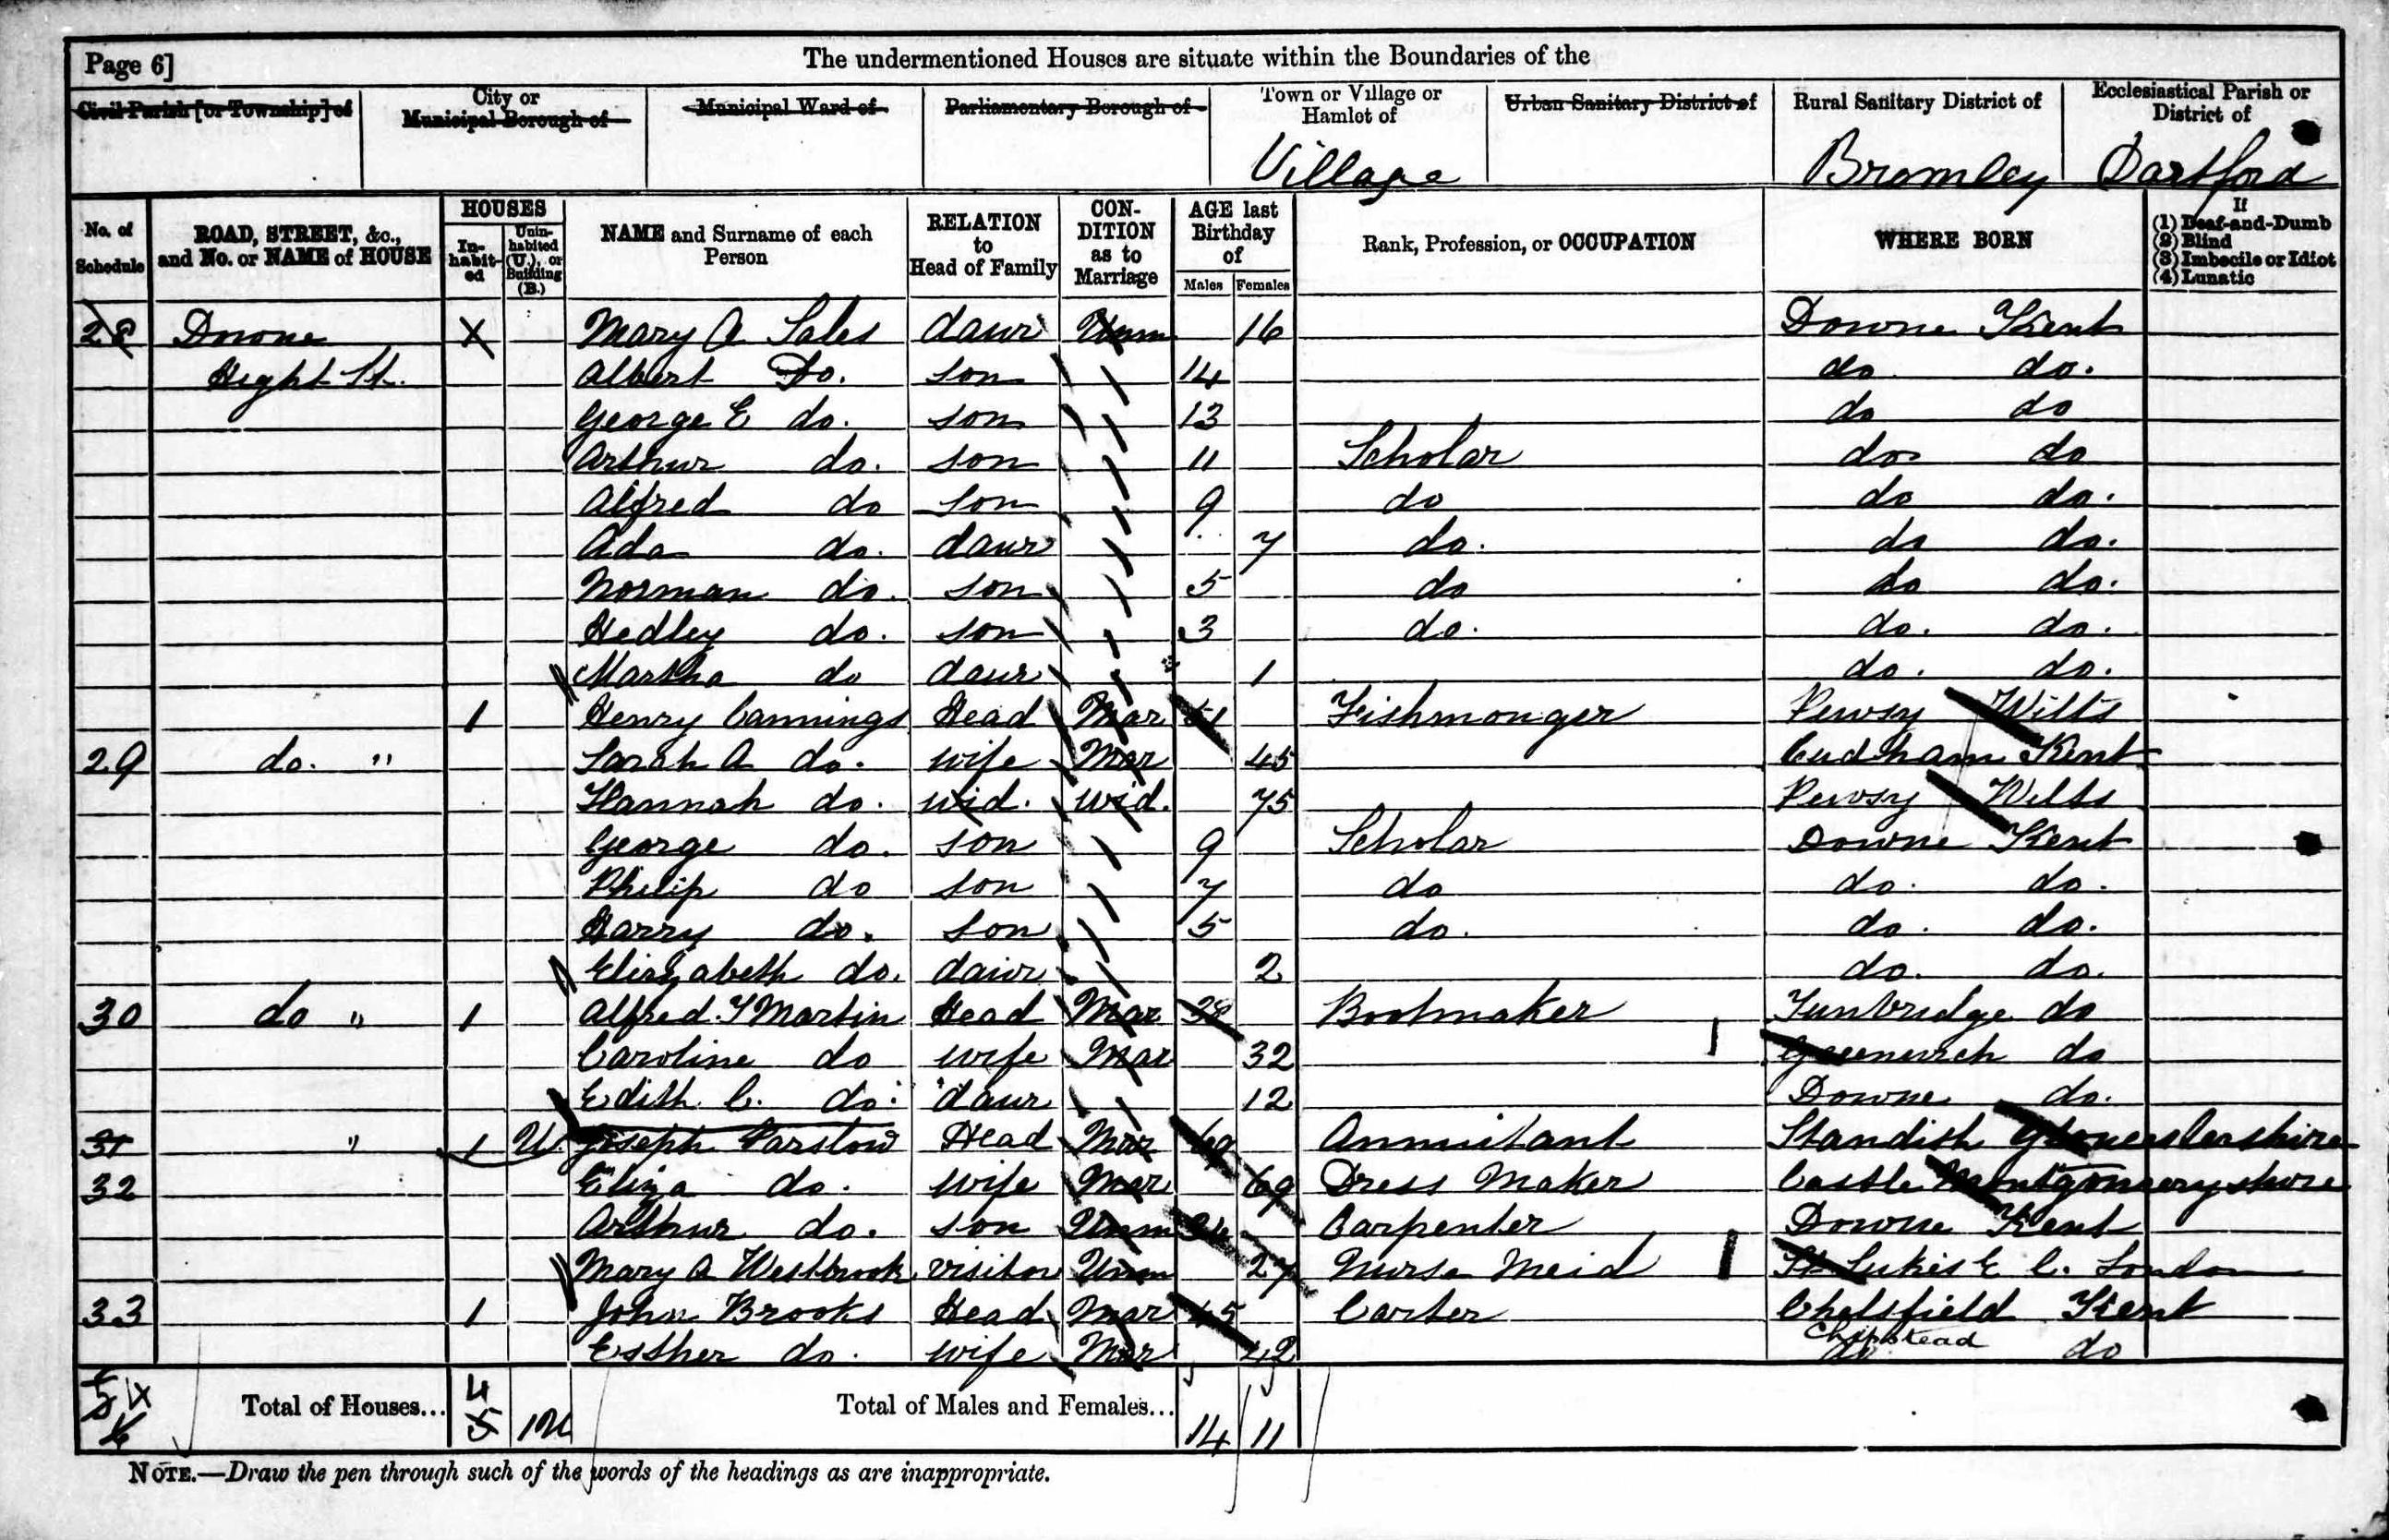 Page 6] The undermentioned Houses are situate within the Boundaries of the
Civil Parish [or Township] of | City or Municipal Borough of | Municipal Ward of | Parliamentary Borough of | Town or Village or Hamlet of | Urban Sanitary District of | Rural Sanitary District of | Ecclesiastical Parish or District of
Village | Bromley | Dartford
No. of Schedule | ROAD, STREET, &c., and No. or NAME of HOUSE | HOUSES Inhabited | Uninhabited (U.), or Building (B.) | NAME and Surname of each Person | RELATION to Head of Family | CONDITION as to Marriage | AGE last Birthday of Males | Females | Rank, Profession, or OCCUPATION | WHERE BORN | If (1) Deaf-and-Dumb (2) Blind (3) Imbecile or Idiot (4) Lunatic
28 Downe X Mary A Sales daur Unm 16 Downe Kent
Hight St. Albert Do. son 14 do do.
George E do. son 13 do do
Arthur do. son 11 Scholar do do
Alfred do son 9 do do do.
Ada do. daur 7 do. do do.
Norman do. son 5 do do do.
Hedley do. son 3 do. do. do.
Martha do daur 1 do. do.
1 Henry Cannings Head Mar 51 Fishmonger Pewsy Wilts
29 do. " Sarah A do. wife Mar 45 Cudham Kent
Hannah do. wid. wid. 75 Pewsy Wilts
George do. son 9 Scholar Downe Kent
Philip do son 7 do do. do.
Harry do. son 5 do. do. do.
Elizabeth do. daur 2 do. do.
30 do " 1 Alfred T Martin Head Mar 38 Bootmaker Tunbridge do
Caroline do wife Mar 32 Greenwich do
Edith C. do. daur 12 Downe do.
31 " 1 U. Joseph Parslow Head Mar 69 Annuitant Standish Gloucestershire
32 Eliza do. wife Mar 69 Dress Maker Castle Montgomeryshire
Arthur do. son Unm Carpenter Downe Kent
Mary A Westbrook visitor Unm 27 Nurse Meid St Lukes E C. London
33 1 John Brooks Head Mar 45 Carter Chelsfield Kent
Esther do. wife Mar 42 Chipstead do
Total of Houses... 4 5 1U Total of Males and Females... 14 11
NOTE.—Draw the pen through such of the words of the headings as are inappropriate.